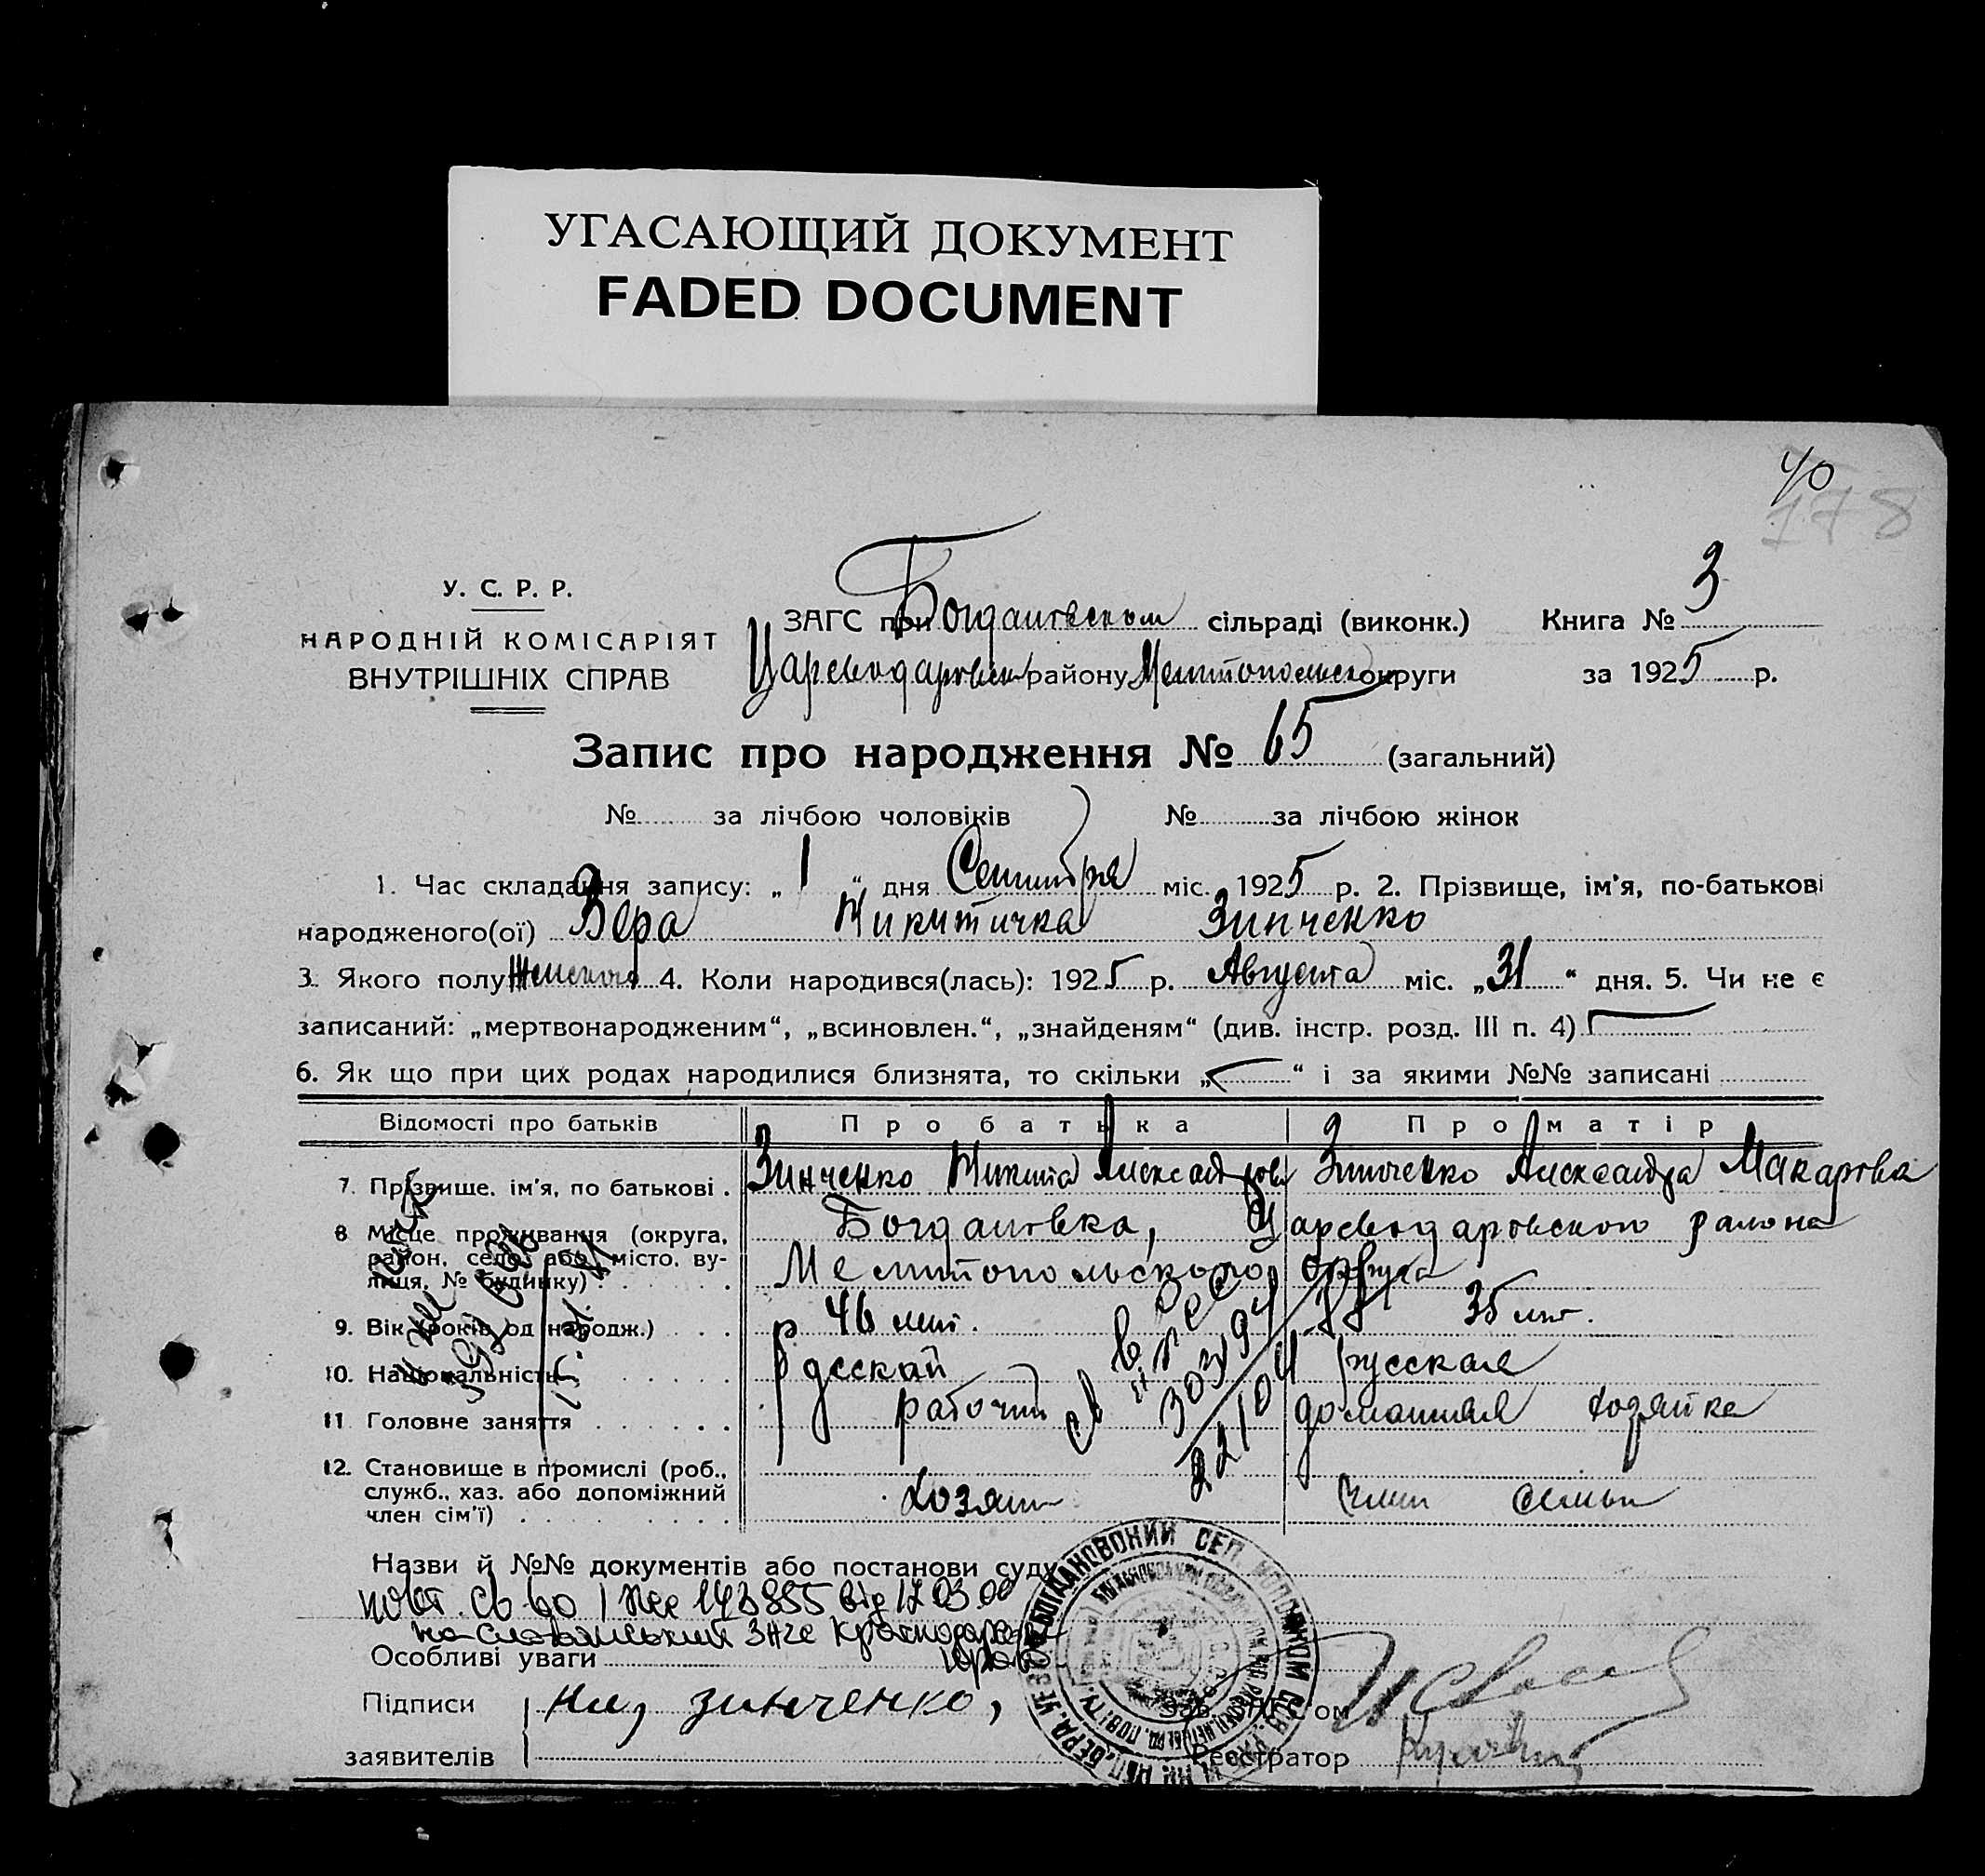 УГАСАЮЩИЙ ДОКУМЕНТ
FADED DOCUMENT
40
178
У. С. Р. Р.
НАРОДНІЙ КОМІСАРІЯТ
ВНУТРІШНІХ СПРАВ
ЗАГС при Богдановском сільраді (виконк.) Книга № 3
Цареводаровск району Мелитопольск округи за 1925 р.
Запис про народження № 65 (загальний)
№ за лічбою чоловіків № за лічбою жінок
1. Час складання запису: „ 1 “ дня Сентября міс. 1925 р. 2. Прізвище, ім'я, по-батькові
народженого(ої) Вера Никитична Зинченко
3. Якого полу Женского 4. Коли народився(лась): 1925 р. Августа міс. „31“ дня. 5. Чи не є
записаний: „мертвонародженим“, „всиновлен.“, „знайденям“ (див. інстр. розд. III п. 4)
6. Як що при цих родах народилися близнята, то скільки „ “ і за якими №№ записані
Відомості про батьків Про батька Про матір
7. Прізвище, ім'я, по батькові . Зинченко Никита Александров Зинченко Александра Макарова
8 Місце проживання (округа, район, село, або місто, вулиця, № будинку) Богдановка, Цареводаровского района
Мелитопольского округа
9. Вік (років од народж.) 46 лет. 35 лет.
10. Національність русский русская
11 Головне заняття рабочий домашняя хозяйка
12. Становище в промислі (роб.,
служб., хаз. або допоміжний
член сім'ї) хозяин член семьи
Назви й №№ документів або постанови суду
повт. св во 1 143855 від 17 03 00
на Славянський ЗАГС Краснодарск
края
Особливі уваги
Підписи Зинченко,
Зав. ЗАГС'ом
заявителів
Реєстратор